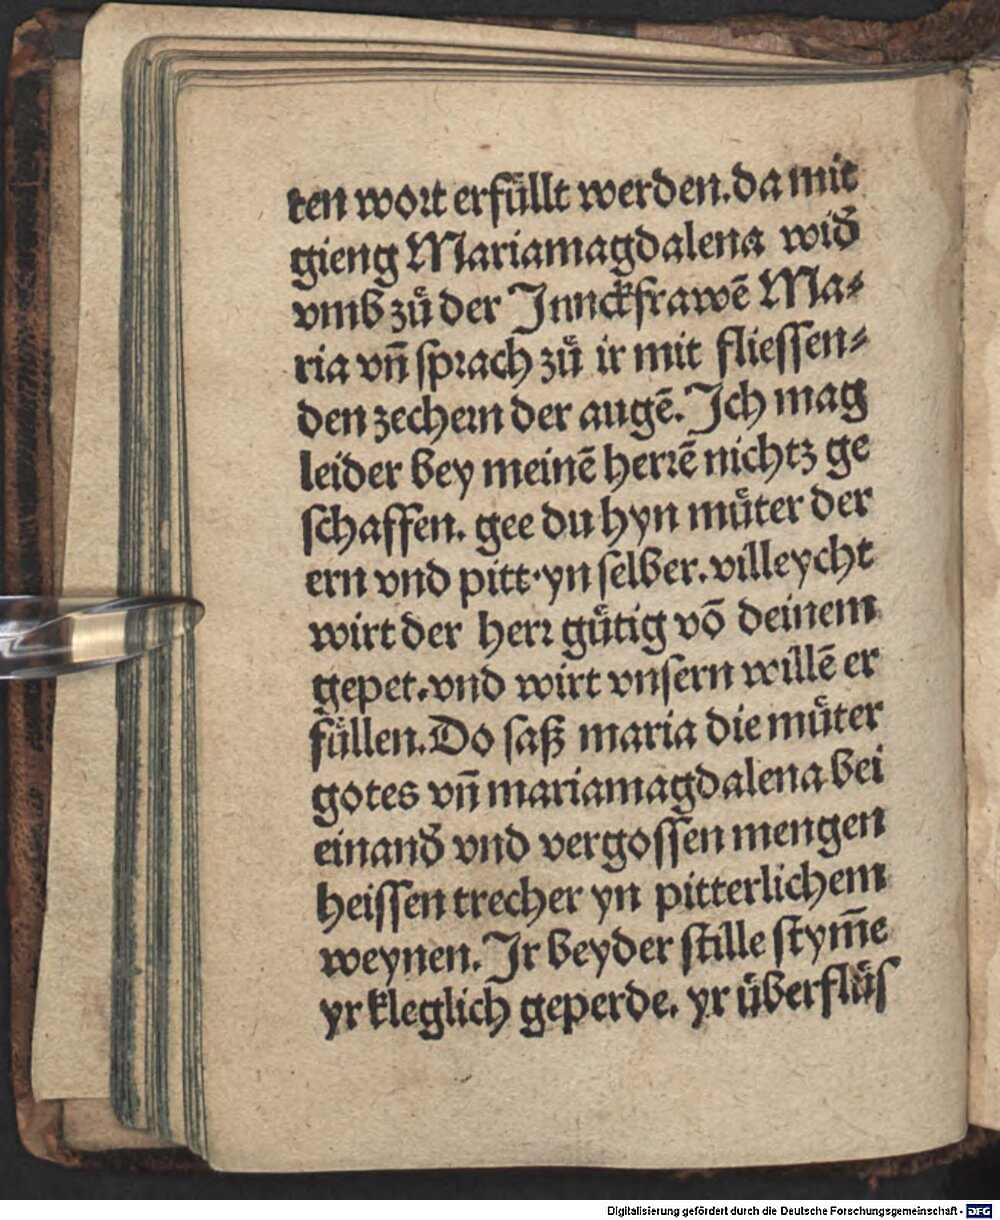 ten wort erfüllt werden. da mit
gieng Mariamagdalena wid᷑
vmb zuͤ der Junckfrawē Ma⸗
ria vn̄ sprach zuͤ ir mit fliessen⸗
den zechern der augē. Jch mag
leider bey meinē herrē nichtz ge
schaffen. gee du hyn muͤter der
ern vnd pitt yn selber. villeycht
wirt der herr guͤtig vō deinem
gepet. vnd wirt vnsern willē er
füllen. Do saß maria die muͤter
gotes vn̄ mariamagdalena bei
einand᷑ vnd vergossen mengen
heissen trecher yn pitterlichem
weynen. Jr beyder stille stym̄e
yr kleglich geperde. yr überflüs
Digitalisierung gefördert durch die Deutsche Forschungsgemeinschaft - DFG